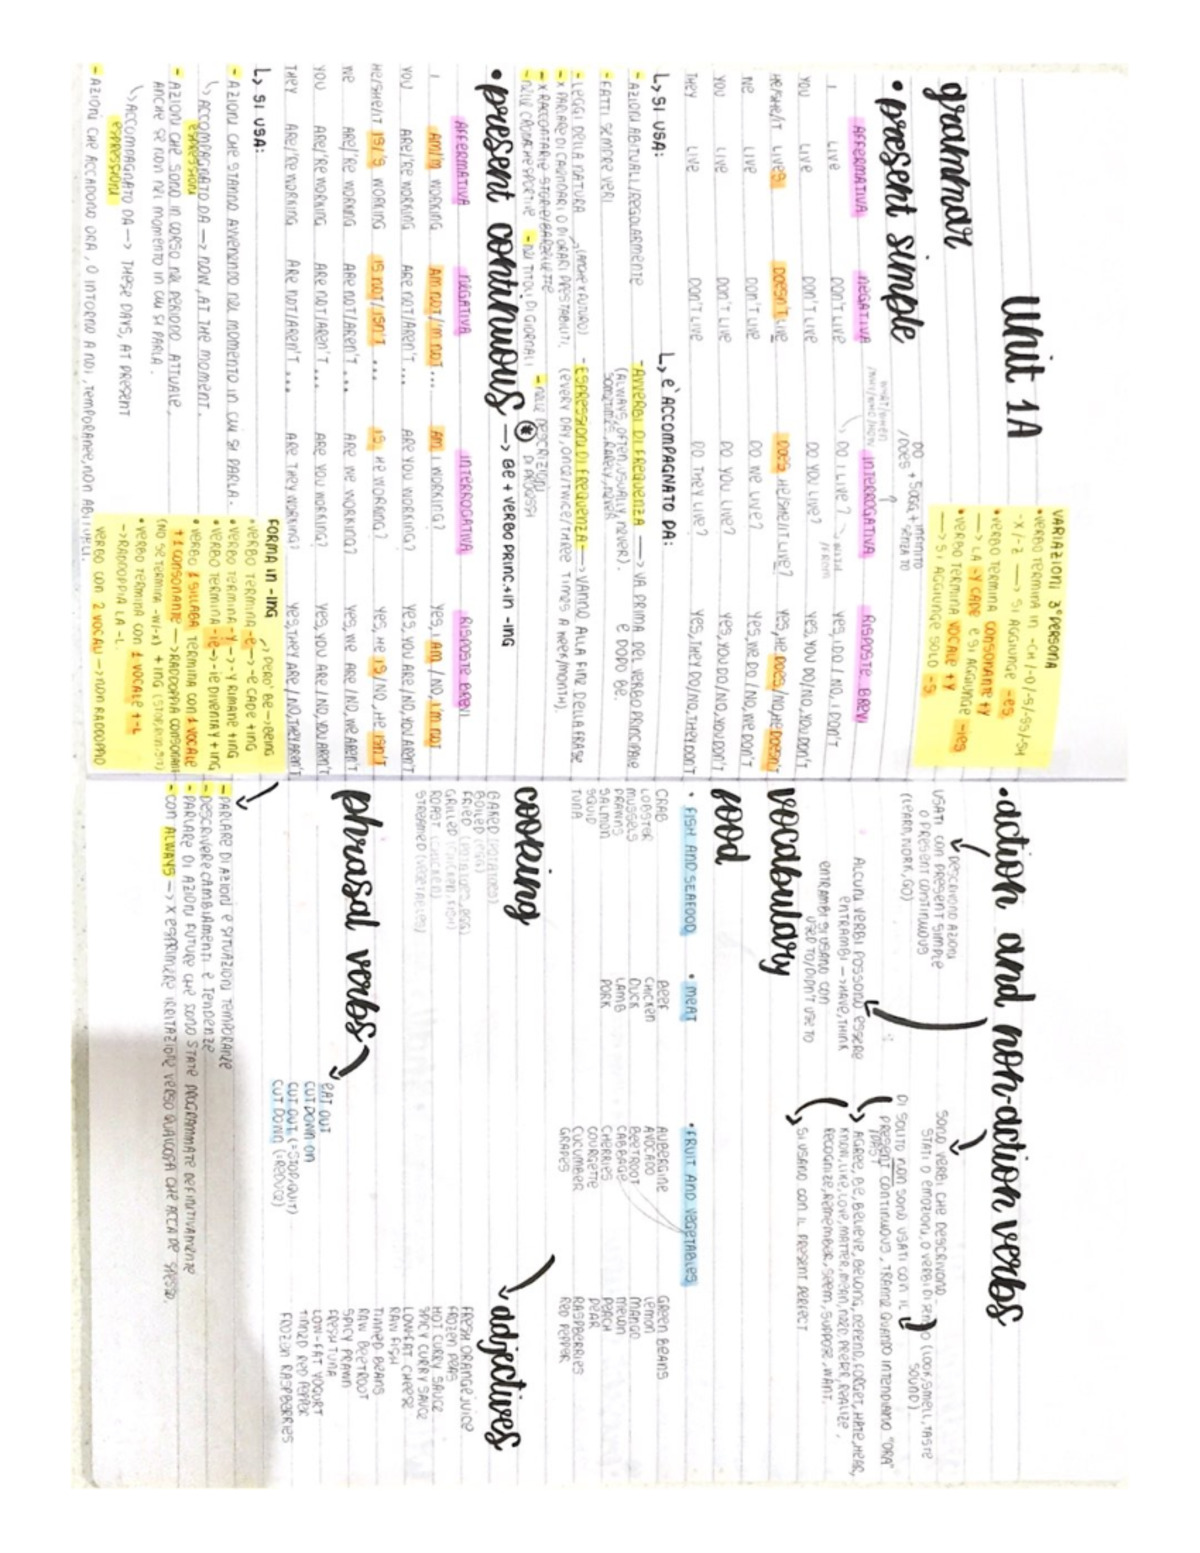 Unit 1A
grammar
• present simple
DO /DOES + SOGG + INFINITO SENZA TO
VARIAZIONI 3ª PERSONA
• VERBO TERMINA IN -CH/-O/-S/-SS/-SH
-X/-Z → SI AGGIUNGE -ES.
• VERBO TERMINA CONSONANTE +Y
→ LA -Y CADE E SI AGGIUNGE -IES
• VERBO TERMINA VOCALE +Y
→ SI AGGIUNGE SOLO -S.
AFFERMATIVA NEGATIVA INTERROGATIVA RISPOSTE BREVI
I LIVE DON'T LIVE DO I LIVE? YES, I DO / NO, I DON'T
YOU LIVE DON'T LIVE DO YOU LIVE? YES, YOU DO/NO, YOU DON'T
HE/SHE/IT LIVES DOESN'T LIVE DOES HE/SHE/IT LIVE? YES, HE DOES/NO, HE DOESN'T
WE LIVE DON'T LIVE DO WE LIVE? YES, WE DO/NO, WE DON'T
YOU LIVE DON'T LIVE DO YOU LIVE? YES, YOU DO/NO, YOU DON'T
THEY LIVE DON'T LIVE DO THEY LIVE? YES, THEY DO/NO, THEY DON'T
↳ SI USA:
- AZIONI ABITUALI/REGOLARMENTE
- FATTI SEMPRE VERI
- LEGGI DELLA NATURA (ANCHE X FUTURO)
- X PARLARE DI CALENDARI O DI ORARI PRESTABILITI.
- X RACCONTARE STORIE/BARZELLETTE
- NELLE CRONACHE SPORTIVE - NEI TITOLI DI GIORNALI - NELLE DESCRIZIONI DI PROCESSI
↳ E' ACCOMPAGNATO DA:
- AVVERBI DI FREQUENZA → VA PRIMA DEL VERBO PRINCIPALE
(ALWAYS, OFTEN, USUALLY, NEVER). E DOPO BE.
SOMETIMES, RARELY, NEVER
- ESPRESSIONI DI FREQUENZA → VANNO ALLA FINE DELLA FRASE
(EVERY DAY, ONCE/TWICE/THREE TIMES A WEEK/MONTH).
• present continuous → BE + VERBO PRINC. + IN -ING
AFFERMATIVA NEGATIVA INTERROGATIVA RISPOSTE BREVI
I AM/'M WORKING AM NOT/'M NOT ... AM I WORKING? YES, I AM / NO, I'M NOT
YOU ARE/'RE WORKING ARE NOT/AREN'T ... ARE YOU WORKING? YES, YOU ARE /NO, YOU AREN'T
HE/SHE/IT IS/'S WORKING IS NOT/ISN'T ... IS HE WORKING? YES, HE IS /NO, HE ISN'T
WE ARE/'RE WORKING ARE NOT/AREN'T ... ARE WE WORKING? YES, WE ARE /NO, WE AREN'T
YOU ARE/'RE WORKING ARE NOT/AREN'T ... ARE YOU WORKING? YES, YOU ARE /NO, YOU AREN'T
THEY ARE/'RE WORKING ARE NOT/AREN'T ... ARE THEY WORKING? YES, THEY ARE / NO, THEY AREN'T
↳ SI USA:
- AZIONI CHE STANNO AVVENENDO NEL MOMENTO IN CUI SI PARLA.
↳ ACCOMPAGNATO DA → NOW, AT THE MOMENT.
ESPRESSIONI
- AZIONI CHE SONO IN CORSO NEL PERIODO ATTUALE,
ANCHE SE NON NEL MOMENTO IN CUI SI PARLA.
↳ ACCOMPAGNATO DA → THESE DAYS, AT PRESENT
ESPRESSIONI
- AZIONI CHE ACCADONO ORA, O INTORNO A NOI, TEMPORANEE, NON ABITUALI.
FORMA IN -ING → PERO' BE → BEING
• VERBO TERMINA -E → -E CADE +ING
• VERBO TERMINA -Y → -Y RIMANE +ING
• VERBO TERMINA -IE → -IE DIVENTA Y +ING
• VERBO 1 SILLABA TERMINA CON 1 VOCALE
+1 CONSONANTE → RADDOPPIA CONSONANTE
(NO SE TERMINA -W/-X) + ING
• VERBO TERMINA CON 1 VOCALE + -L
→ RADDOPPIA LA -L.
VERBO CON 2 VOCALI → NON RADDOPPIO
• action and non-action verbs
DESCRIVONO AZIONI
USATI CON PRESENT SIMPLE
O PRESENT CONTINUOUS
(LEARN, WORK, GO)
ALCUNI VERBI POSSONO ESSERE
ENTRAMBI → HAVE, THINK
ENTRAMBI SI USANO CON
USED TO/DIDN'T USE TO
SONO VERBI CHE DESCRIVONO
STATI O EMOZIONI, O VERBI DI SENSO (LOOK, SMELL, TASTE
SOUND)
DI SOLITO NON SONO USATI CON IL
PRESENT CONTINUOUS, TRANNE QUANDO INTENDIAMO "ORA"
AGREE, BE, BELIEVE, BELONG, DEPEND, FORGET, HATE, HEAR,
KNOW, LIKE, LOVE, MATTER, MEAN, NEED, PREFER, REALIZE,
RECOGNIZE, REMEMBER, SEEM, SUPPOSE, WANT.
SI USANO CON IL PRESENT PERFECT
vocabulary
food
• FISH AND SEAFOOD
CRAB
LOBSTER
MUSSELS
PRAWNS
SALMON
SQUID
TUNA
• MEAT
BEEF
CHICKEN
DUCK
LAMB
PORK
• FRUIT AND VEGETABLES
AUBERGINE
AVOCADO
BEETROOT
CABBAGE
CHERRIES
COURGETTE
CUCUMBER
GRAPES
GREEN BEANS
LEMON
MANGO
MELON
PEACH
PEAR
RASPBERRIES
RED PEPPER
cooking
BAKED (POTATOES)
BOILED (EGG)
FRIED
GRILLED (CHICKEN, FISH)
ROAST (CHICKEN)
STREAMED (VEGETABLES)
adjectives
FRESH ORANGE JUICE
FROZEN PEAS
HOT CURRY SAUCE
SPICY CURRY SAUCE
LOW-FAT CHEESE
RAW FISH
TINNED BEANS
RAW BEETROOT
SPICY PRAWN
FRESH TUNA
LOW-FAT YOGURT
TINNED RED PEPPER
FROZEN RASPBERRIES
phrasal verbs
EAT OUT
CUT DOWN ON
CUT OUT (=STOP, QUIT)
CUT DOWN (=REDUCE)
- PARLARE DI AZIONI E SITUAZIONI TEMPORANEE
- DESCRIVERE CAMBIAMENTI E TENDENZE
- PARLARE DI AZIONI FUTURE CHE SONO STATE PROGRAMMATE DEFINITIVAMENTE
- CON ALWAYS → X ESPRIMERE IRRITAZIONE VERSO QUALCOSA CHE ACCADE SPESSO.